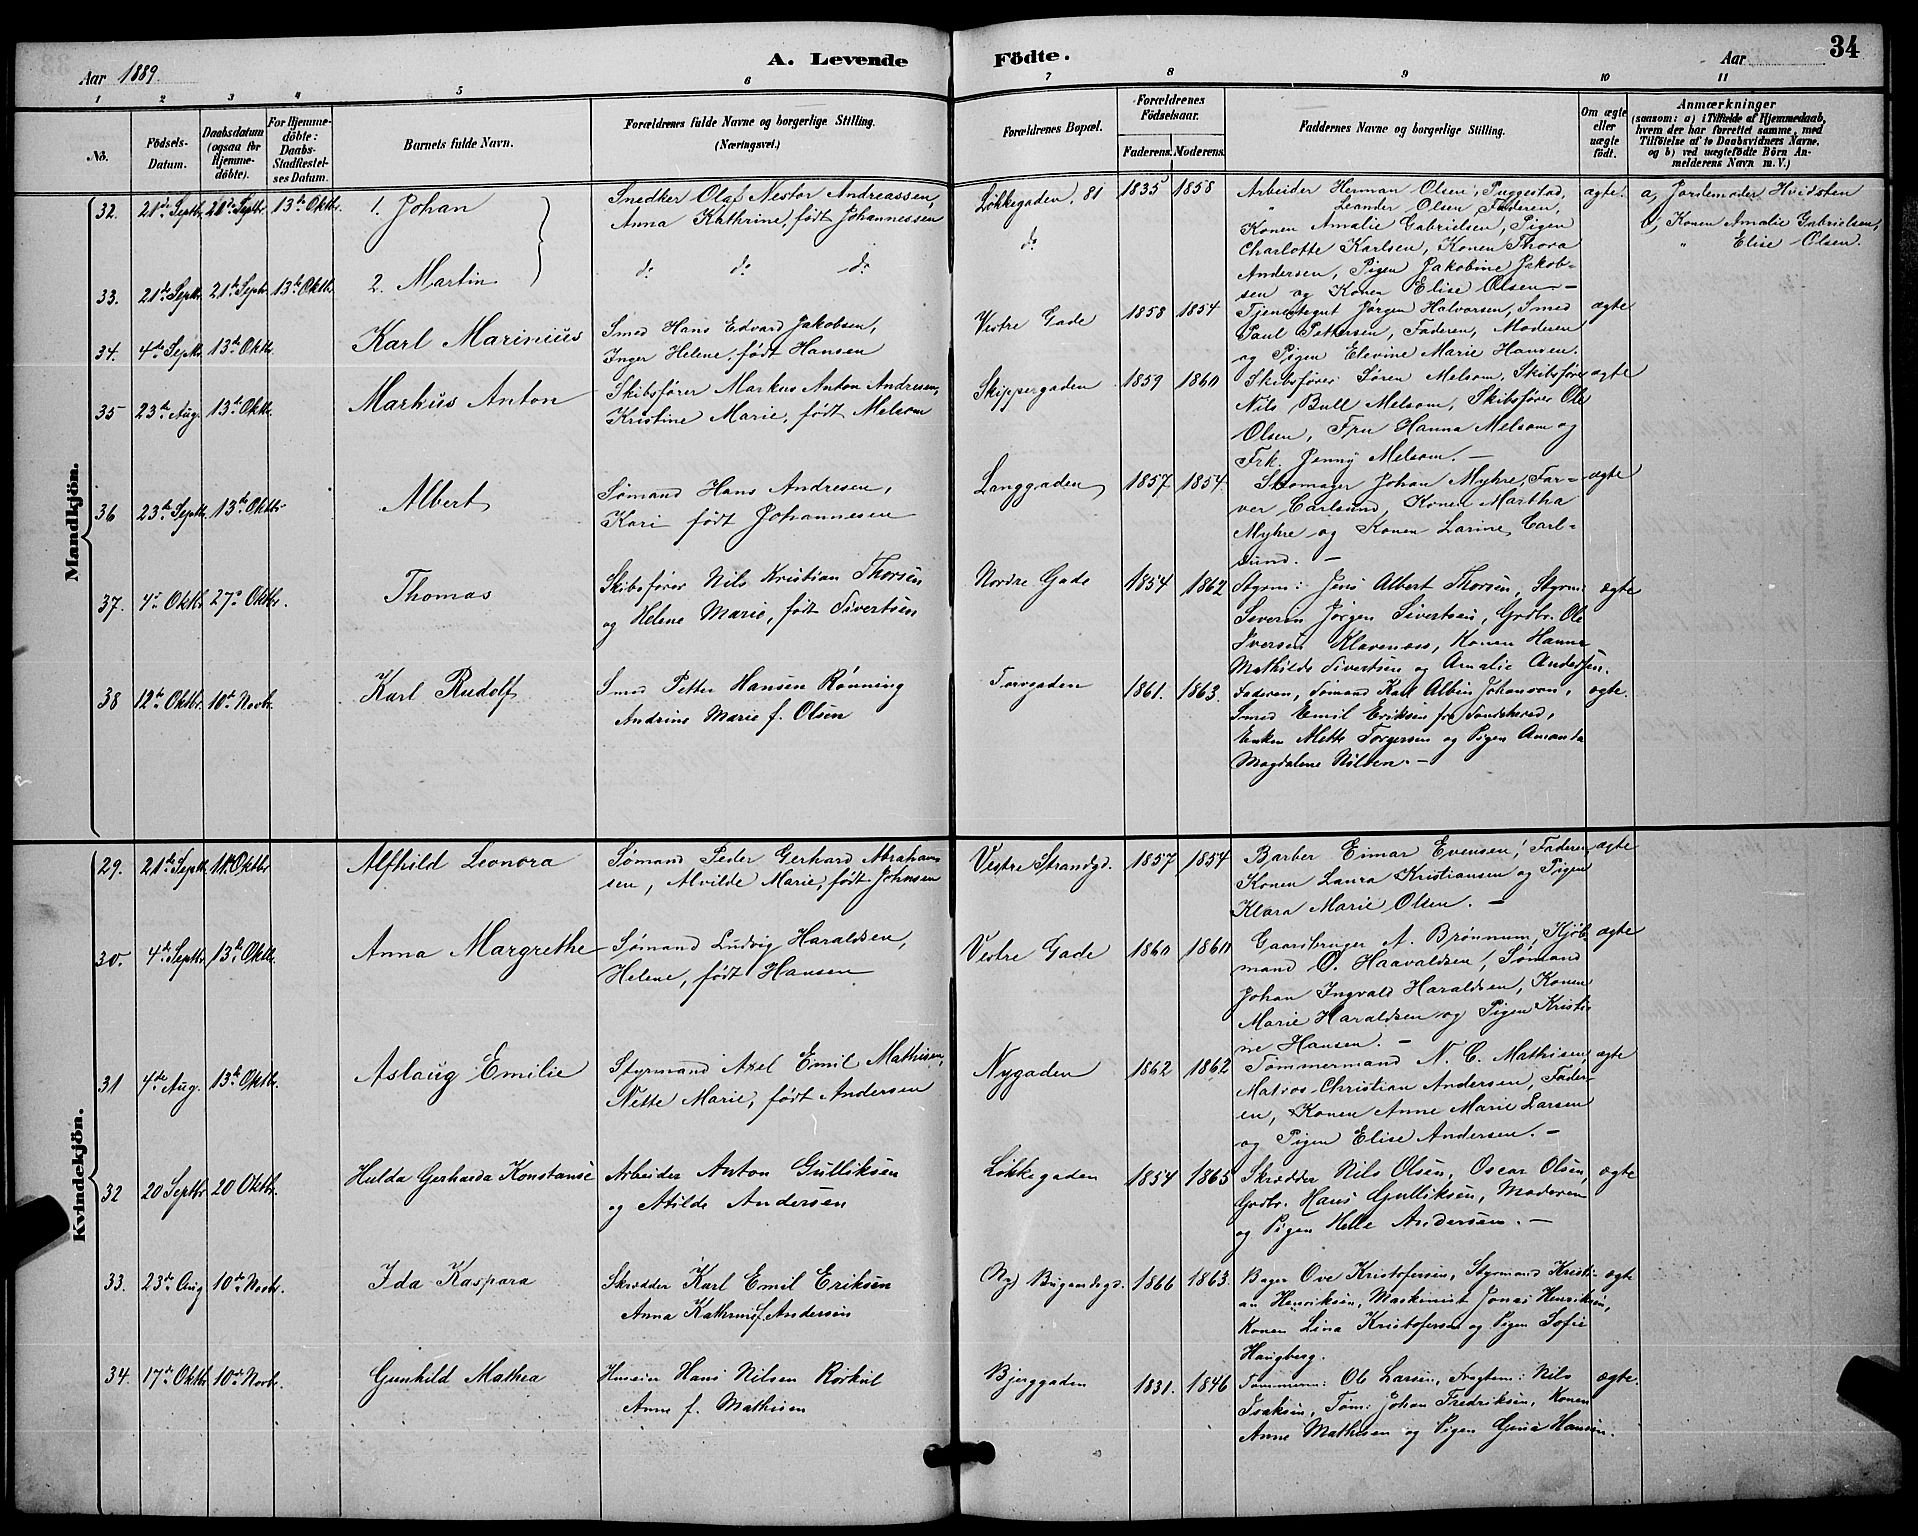 34
A. Levende Födte.
Aar 1889.
Aar
1 2 3 4 5 6 7 8 9 10 11
No.
Födsels-Datum.
Daabsdatum (ogsaa for Hjemmedöbte).
For Hjemmedöbte: Daabs-Stadfæstelses Datum.
Barnets fulde Navn.
Forældrenes fulde Navne og borgerlige Stilling. (Næringsvei.)
Forældrenes Bopæl.
Forældrenes Födselsaar.
Faderens. Moderens.
Faddernes Navne og borgerlige Stilling.
Om ægte eller uægte födt.
Anmærkninger
(saasom: a) i Tilfælde af Hjemmedaab, hvem der har forrettet samme, med Tilföielse af to Daabsvidners Navne, og b) ved uægtefödte Börn Anmelderens Navn m. V.)
Mandkjön.
32. 21de Septbr. 21de Septbr. 13de Oktbr. 1. Johan
Snedker Olaf Nestor Andreassen,
Anna Kathrine, født Johannessen
Løkkegaden, 81 1835 1858
Arbeider Herman Olsen, Puggestad,
" Leander Olsen, Faderen,
Konen Amalie Gabrielsen, Pigen
Charlotte Karlsen, Konen Thora
Andersen, Pigen Jakobine Jakob-
sen og Konen Elise Olsen —
ægte.
a, Jordemoder Hvidsten
b, Konen Amalie Gabrielsen,
" Elise Olsen.
33. 21de Septbr. 21de Septbr. 13de Oktbr. 2. Martin
do do do
do
34. 4de Septbr. 13de Oktbr. Karl Marinius
Smed Hans Edvard Jakobsen,
Inger Helene, født Hansen
Vestre Gade 1858 1854
Tjenestegut Jørgen Halvorsen, Smed
Paul Pettersen, Faderen, Moderen
og Pigen Elevine Marie Hansen.
ægte
35 23de Aug. 13de Oktbr. Markus Anton
Skibsfører Markus Anton Andresen,
Kristine Marie, født Melsom
Skippergaden 1859 1860
Skibsfører Søren Melsom, Skibsfører
Nils Bull Melsom, Skibsfører Ole
Olsen, Fru Hanna Melsom og
Frk. Jenny Melsom. —
ægte
36 23de Septbr. 13de Oktbr. Albert
Sømand Hans Andresen,
Kari født Johannesen
Langgaden 1857 1854.
Skomager Johan Myhre, Far-
ver Carlsund, Konen Martha
Myhre og Konen Larine Carl-
sund. —
ægte
37. 4de Oktbr. 27de Oktbr. Thomas
Skibsfører Nils Kristian Thorsen
og Helene Marie, født Sivertsen
Nordre Gade 1854 1862
Styrm: Jens Albert Thorsen, Styrm:
Severin Jørgen Sivertsen, Grdbr. Ole
Iversen Klavenæs, Konen Hanna
Mathilde Sivertsen og Amalie Andersen.
ægte
38 12te Oktbr. 10de Novbr. Karl Rudolf
Smed Petter Hansen Rønning
Andrine Marie f. Olsen
Torvgaden 1861. 1863.
Faderen, Sømand Karl Albin Johanson,
Smed Emil Eriksen fra Sandeherred,
Enken Mette Torgersen og Pigen Amanda
Magdalene Nilsen. —
ægte.
Kvindekjön.
29. 21de Septbr. 11te Oktbr. Alfhild Leonora
Sømand Peder Gerhard Abraham-
sen, Alvilde Marie, født Johnsen
Vestre Strandgd. 1857 1854
Barber Eimar Evensen, Faderen,
Konen Laura Kristiansen og Pigen
Klara Marie Olsen. —
ægte
30. 4de Septbr. 13de Oktbr. Anna Margrethe
Sømand Ludvig Haraldsen,
Helene, født Hansen
Vestre Gade 1860 1860
Gaardbruger A. Brønnum, Kjøb-
mand O. Haavaldsen, Sømand
Johan Ingvald Haraldsen, Konen
Marie Haraldsen og Pigen Kristi-
ne Hansen. —
ægte
31 4de Aug. 13de Oktbr. Aslaug Emilie
Styrmand Axel Emil Mathisen,
Nette Marie, født Andersen
Nygaden 1862 1862
Tømmermand N. C. Mathisen,
Matros Christian Andersen, Fader-
en, Konen Anne Marie Larsen
og Pigen Elise Andersen. —
ægte
32 20 Septbr. 20 Oktbr. Hulda Gerharda Konstanse
Arbeider Anton Gulliksen
og Atilde Andersen
Løkkegaden 1854 1865
Skrædder Nils Olsen, Oscar Olsen,
Grdbr. Hans Gulliksen, Moderen
og Pigen Helle Andersen. —
ægte
33. 23de Aug 10de Novbr. Ida Kaspara
Skrædder Karl Emil Eriksen
Anna Kathrine f. Andersen
(Ny) Bugaardsgd. 1866 1863.
Bager Ove Kristofersen, Styrmand Kristi-
an Henriksen, Maskinist Jonas Henriksen,
Konen Lina Kristofersen og Pigen Sofie
Haugberg.
ægte
34. 17de Oktbr. 10de Novbr. Gunhild Mathea
Huseier Hans Nilsen Rørkul
Anne f. Mathisen
Bjerggaden 1831. 1846
Tømmerm: Ole Larsen, Fragtem: Nils
Isaksen, Tøm: Johan Fredriksen, Konen
Anne Mathisen og Pigen Gina Hansen.
ægte.